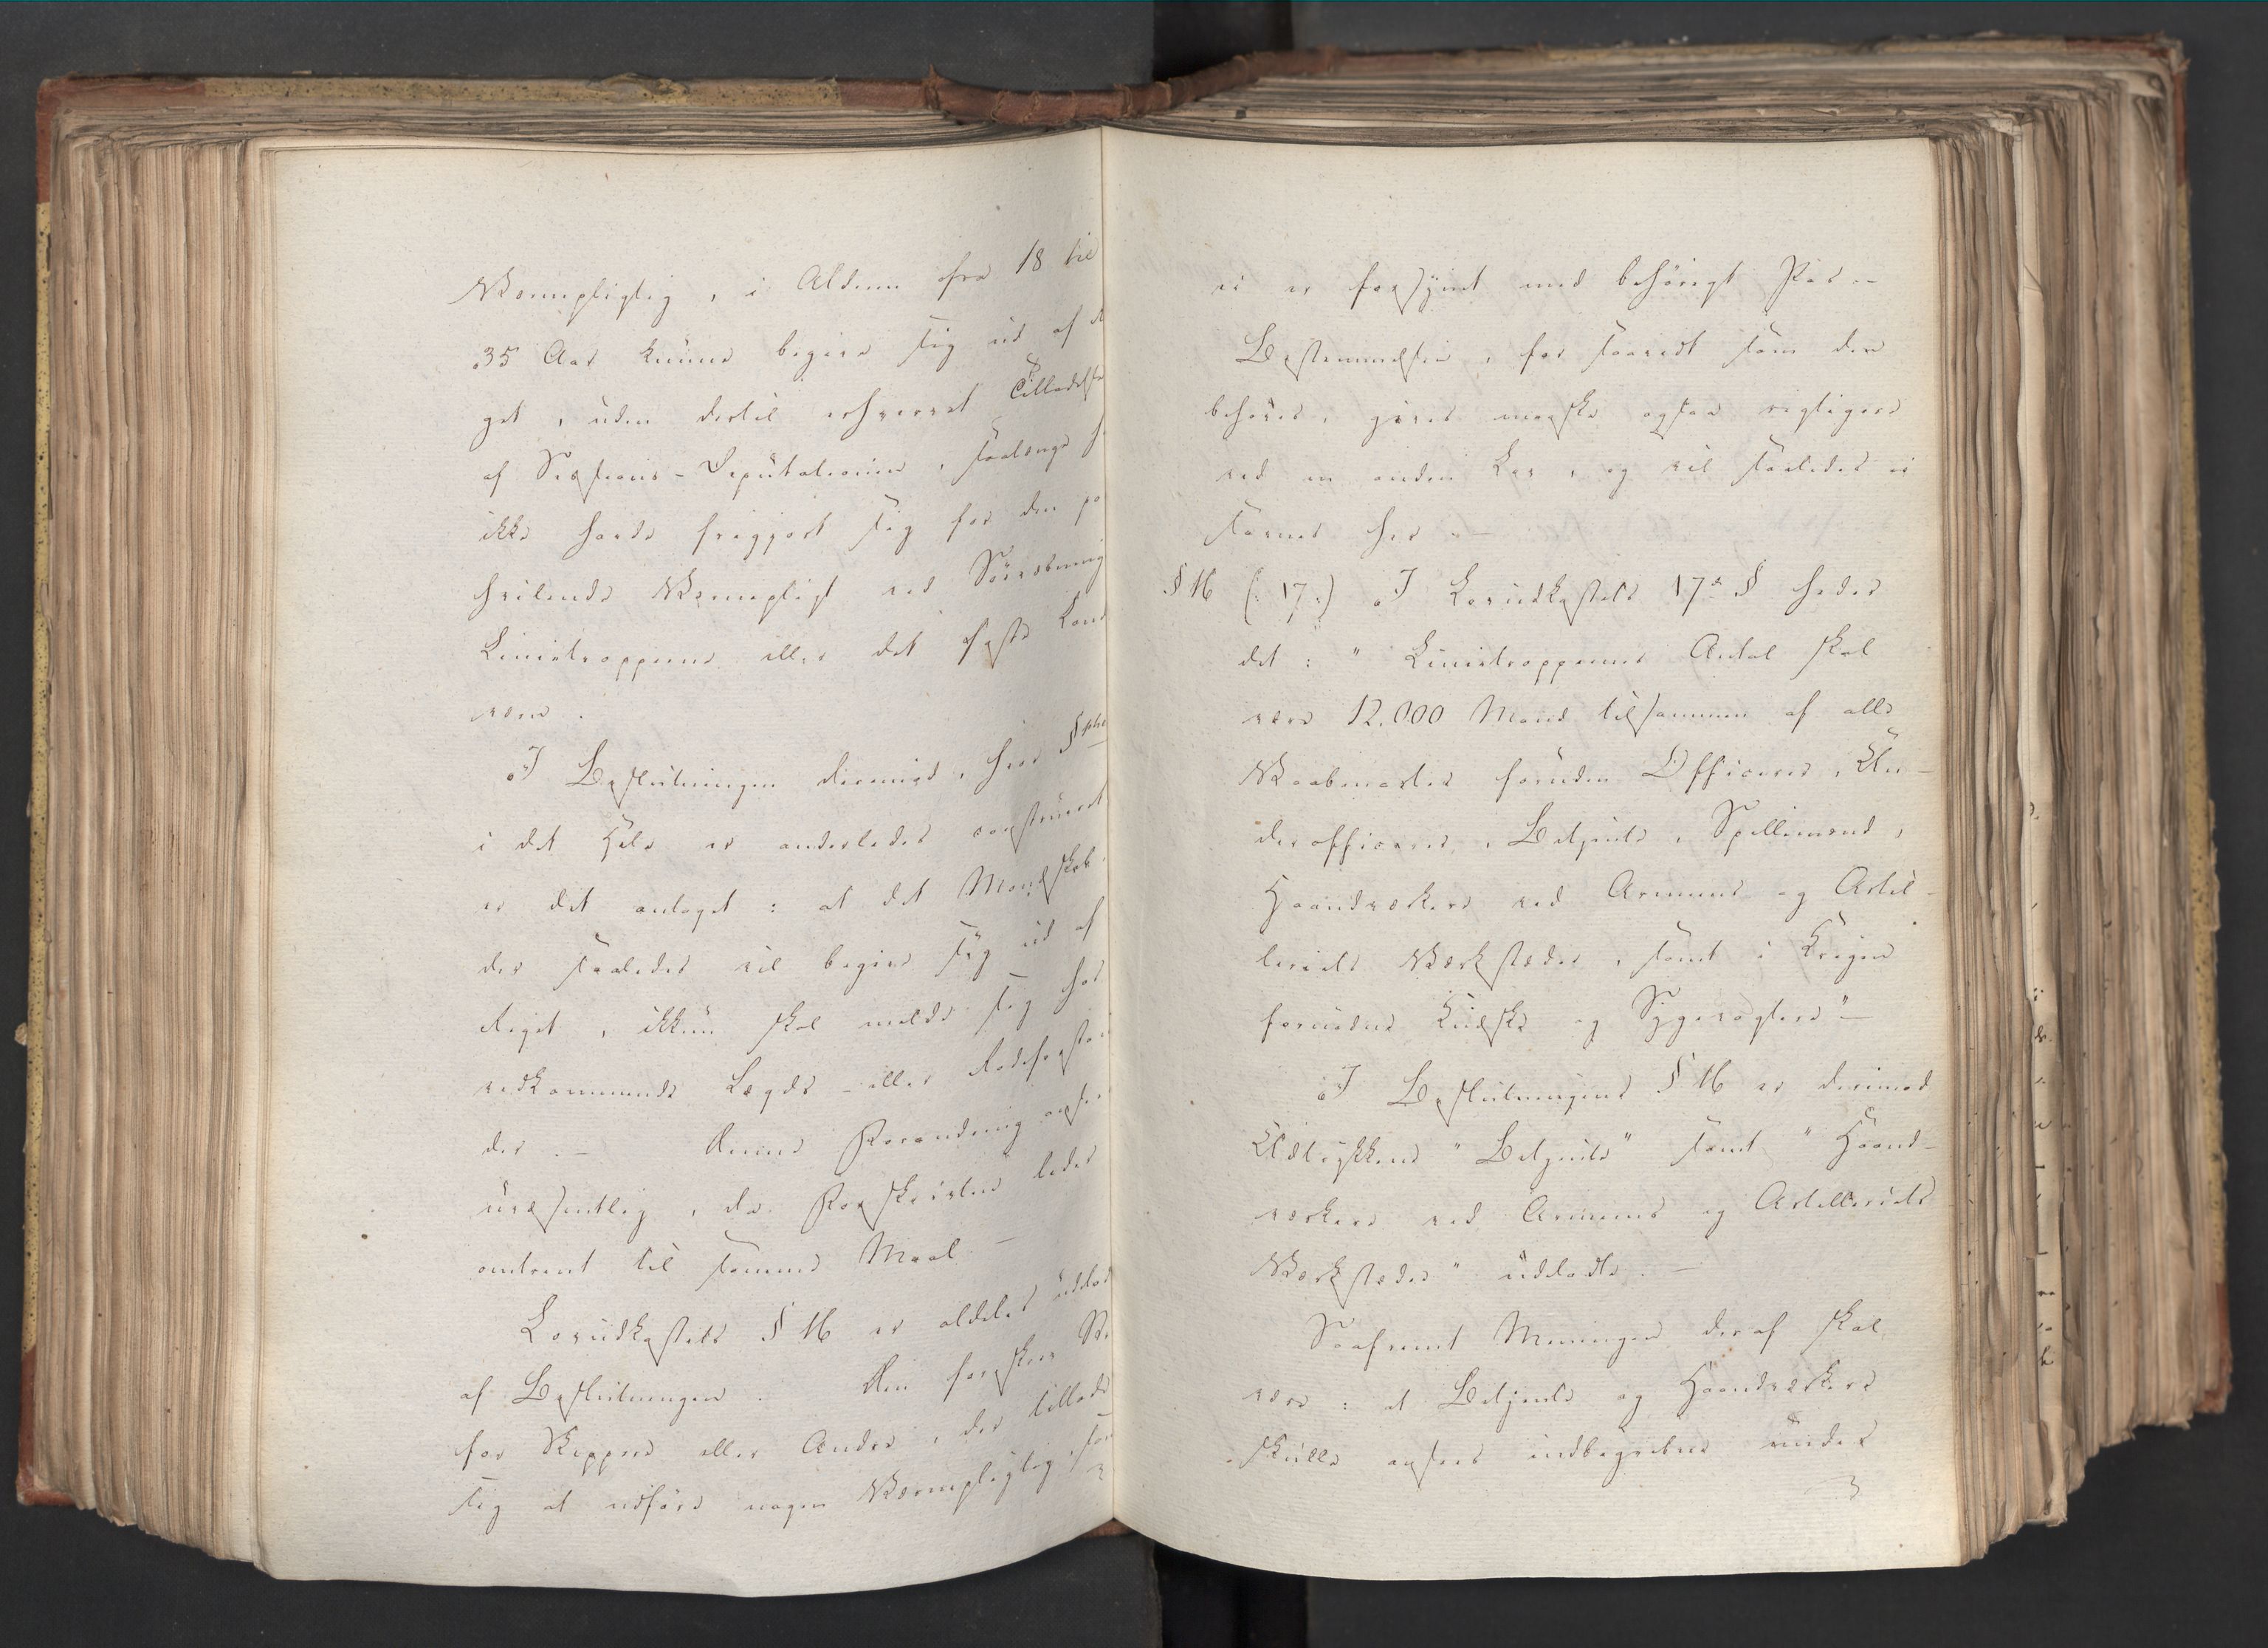 Værnepligtig, i Alderen fra 18 til
35 Aar kunne begive sig ud af
get, uden dertil erhvervet Tilladelse
af Sessions-Deputationen, saalænge
ikke havde friggjort sig for den
hvilende Værnepligt ved
Linietropperne eller det
værn.
I Beslutningen derimod, hvor §phe
i det Hele er anderledes construeret
er det antaget: at det Mandskab
der saaledes vil begive sig ud af
Riget, ikkun skal melde sig hos
vedkommende Lægds- eller Rodeforstan
der. - Denne Forandring ansees
uvæsentlig, da Forskrivten leder
omtrent til samme Maal -
Lovudkastets § 16 er aldeles udeladt
af Beslutningen. Den foreskrev
for Skippere eller Andre, der tillade
sig at udføre nogen Værnepligtig, som
ei er forsynt med behørigt Pas.-
Bestemmelsen, for saavidt som den
behøves, gives maaske ogsaa rigtigere
ved en anden Lov, og vil saaledes ei
savnes her.-
§ 16 (: 17:) I Lovudkastets 17de § heder
det: "Linietroppernes Antal skal
være 12.000 Mand tilsammen af alle
Vaabenarter foruden Officerer, Un-
derofficerer, Betjente, Spillemænd,
Haandværkere ved Armeens og Artil-
leriets Værksteder, samt i Krigen
fornødne Kudske og Sygevogtere"-
I Beslutningens § 16 er derimod
Udtrykkene "Betjente" samt "Haand-
værkere ved Armeens og Artilleriets
Værksteder" udeladte. -
Saafremt Meningen deraf skal
være: at Betjente og Haandværkere
skulle ansees indbegrebne under